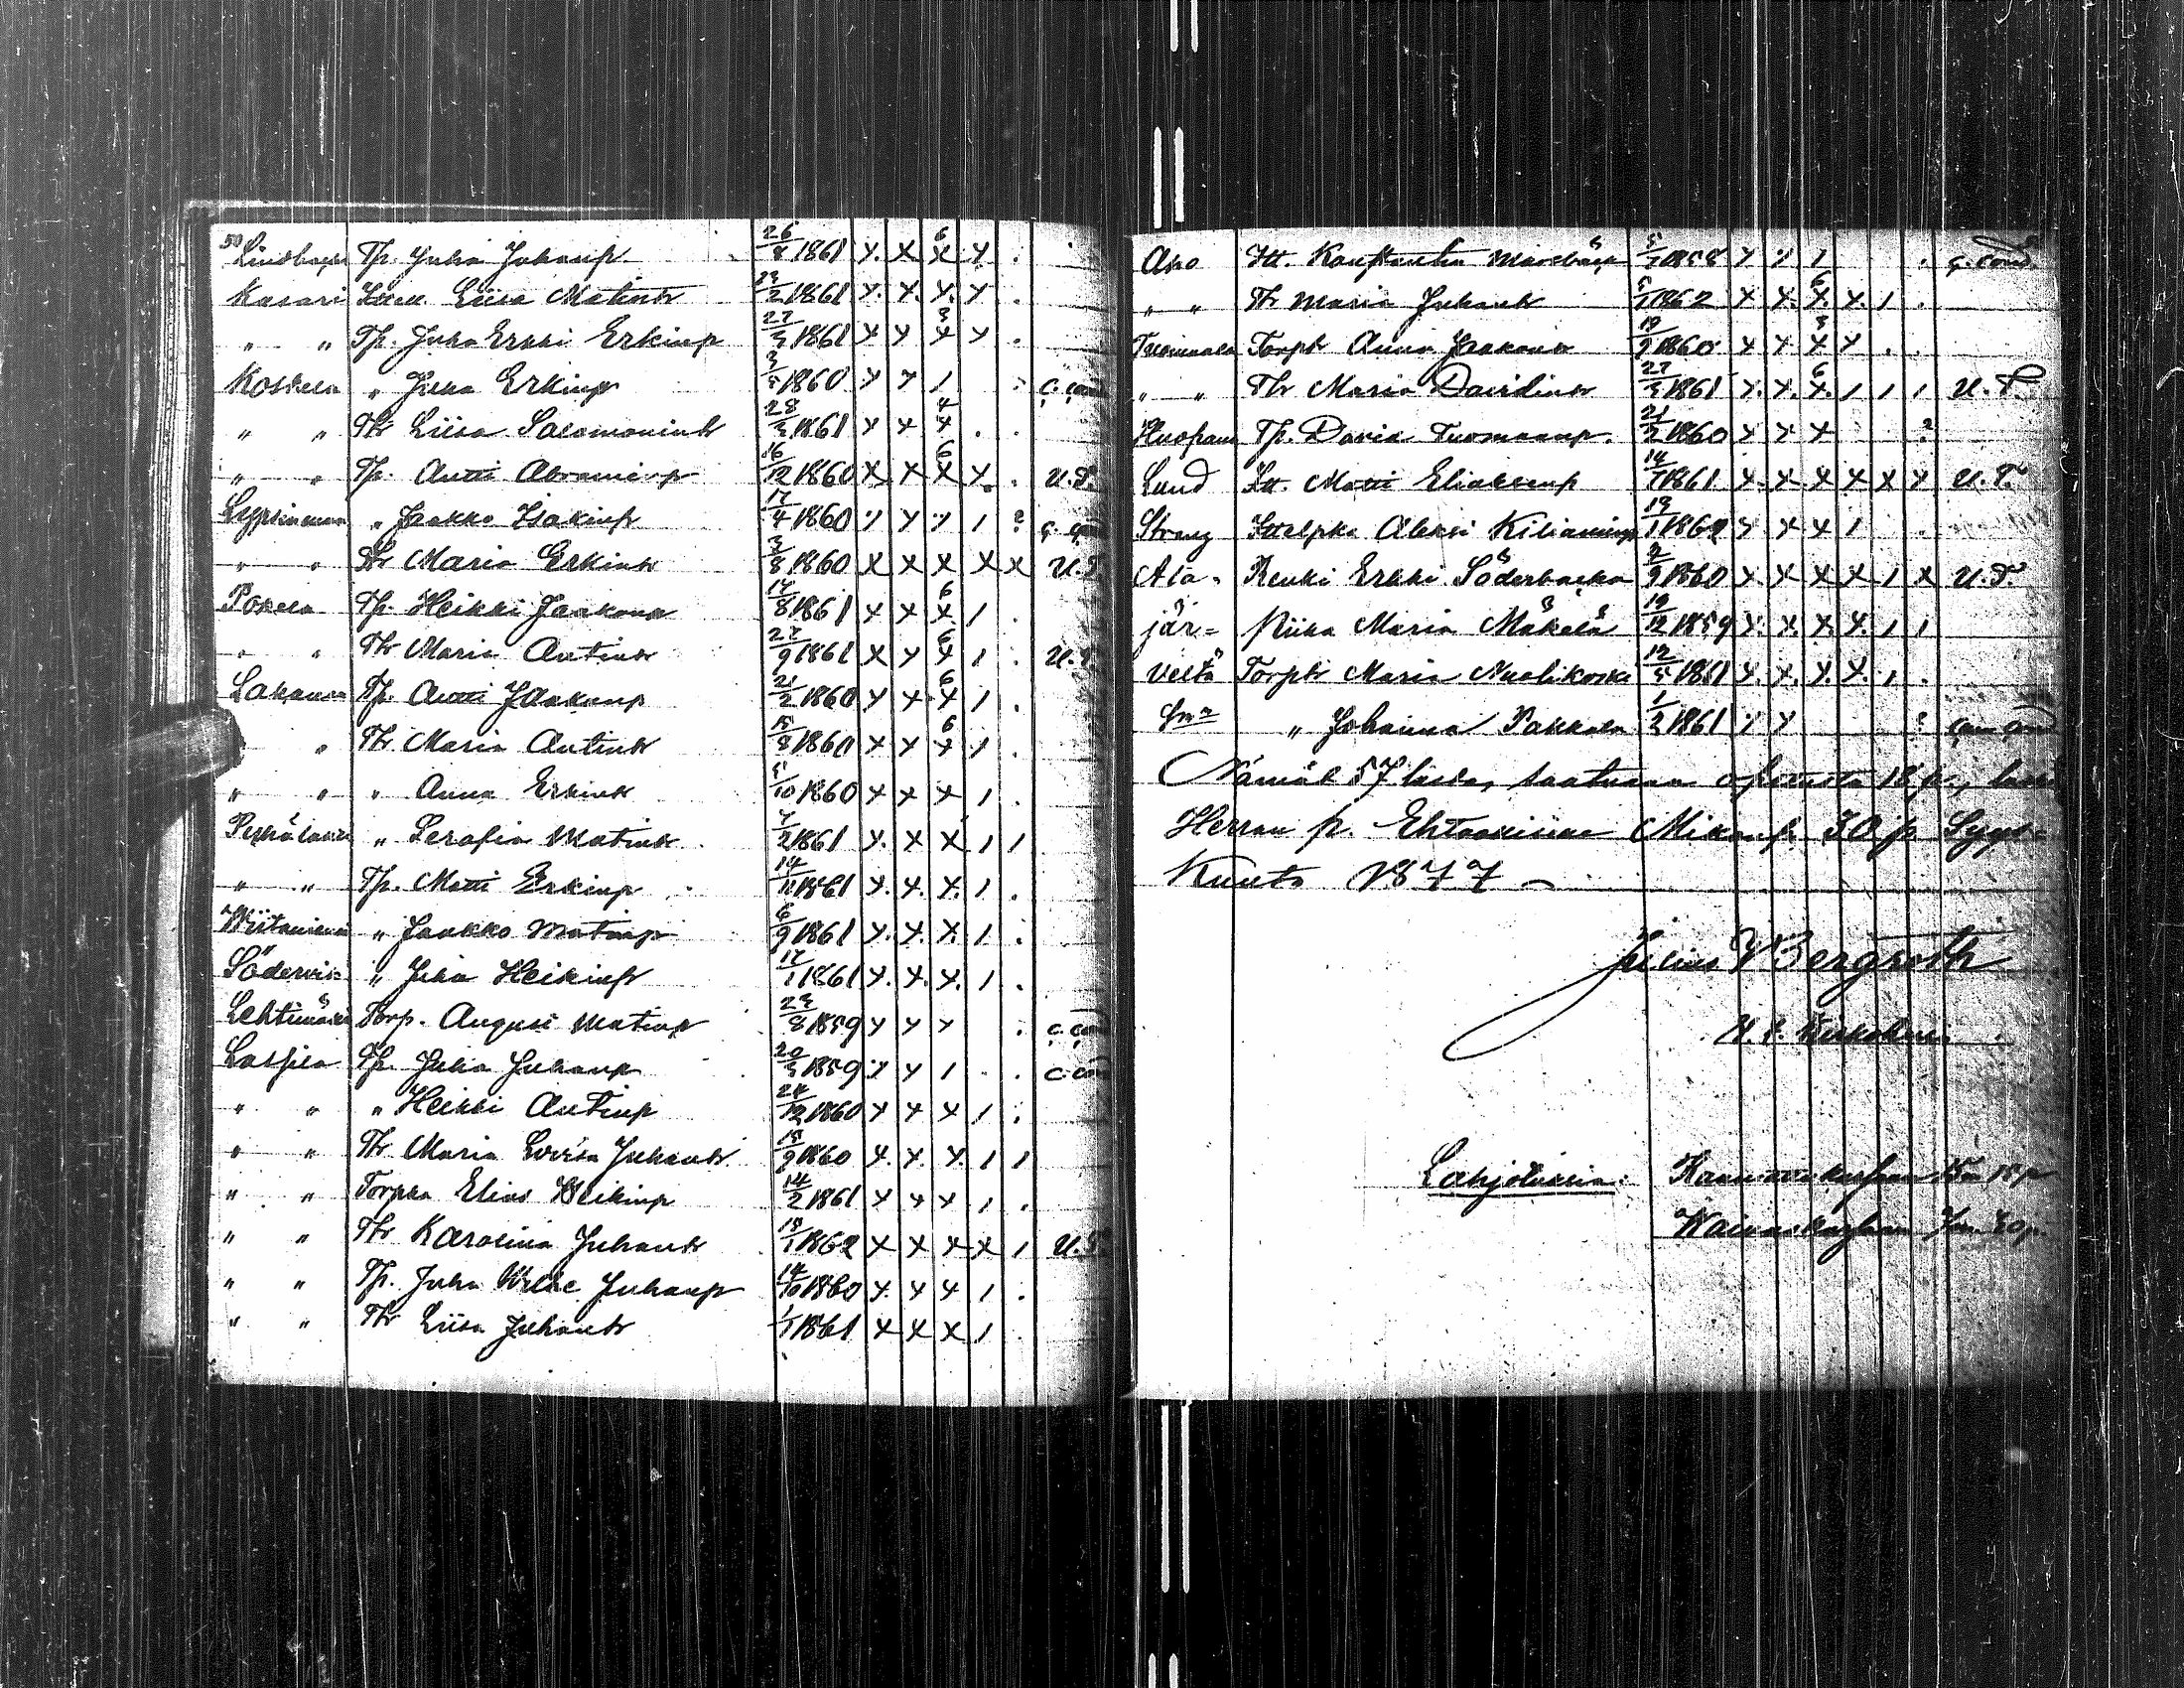 50
Lindbacka Tp. Juha Juhanp 26/8 1861 x x x 6 x .
Kasari Liisa Matintr 23/2 1861 x x x x .
" " Tp. Juha Erkki Erkinp 27/3 1861 x x x 3 x .
Koskela " Juha Erkinp 3/5 1860 x x 1 . c. cond
" " Tr Liisa Salomonintr 28/3 1861 x x x 4 . .
" " Tp. Antti Abraminp 16/12 1860 x x x 6 x . U.T.
" Jaakko Isakinp 17/4 1860 x x x 1 ? c. cond
" " Tr Maria Erkintr 3/8 1860 x x x x x U.T
Pokela Tp. Heikki Jaakonp 17/8 1861 x x x 6 1 .
" " Tr Maria Antintr 27/9 1861 x x x 6 1 . U.T.
Lakanen Tp. Antti Jaakonp 21/2 1860 x x x 6 1 .
" Tr Maria Antintr 15/8 1860 x x x 6 1 .
" " " Anna Erkintr 5/10 1860 x x x 1 .
" Serafia Matintr 7/2 1861 x x x 1 1
" " Tp. Matti Erkinp 14/11 1861 x x x 1 .
Wiitaniemi " Jaakko Matinp 6/9 1861 x x x 1 .
Södervik " Juha Heikinp 17/1 1861 x x x 1 .
Lehtimäki Torp. August Matinp 23/8 1859 x x x . c. cond
Lassila Tp. Juha Juhanp 20/3 1859 x x 1 . . c. cond
" " " Heikki Antinp 24/12 1860 x x x 1 .
" " Tr Maria Lovisa Juhantr 15/9 1860 x x x 1 1
" " Torpka Elias Heikinp 14/2 1861 x x x 1 .
" " Tr Karolina Juhantr 18/1 1862 x x x x 1 U.T
" " Tp. Juha Wilhe Juhanp 14/10 1860 x x x 1 .
" " Tr Liisa Juhantr 1/1 1861 x x x 1
Aho Itt. Konstantin 5/1 1858 x x 1 . c. cond.
" " Tr Maria Juhantr 5/1 1862 x x x 6 x 1 .
Tuomaala Torptr Anna Jaakontr 19/9 1860 x x x 3 x . .
" " Tr Maria Davidintr 27/3 1861 x x x 6 1 1 1 U.T.
Tp. David Tuomaanp. 21/2 1860 x x x ?
Lund Itt. Matti Eliaksenp 14/7 1861 x x x x x x U.T.
Strang Aleksi Kilianinp 19/1 1862 x x x 1 .
Ala- Renki Erkki Söderbacka 2/9 1860 x x x x 1 x U.T.
jär- Piika Maria Mäkelä 19/12 1859 x x x x 1 1
veltä Torptr Maria Nualikoski 12/5 1861 x x x x 1 .
" Johanna Pakkala 1/2 1861 x x ? cum cond
Nämät 57 lasta, saatuaan opetusta 18 p.,
Herran p. Ehtoollisen Mikonp. 30 p Syys-
Kuuta 1877
Julius W Bergroth
Lahjoituksia: